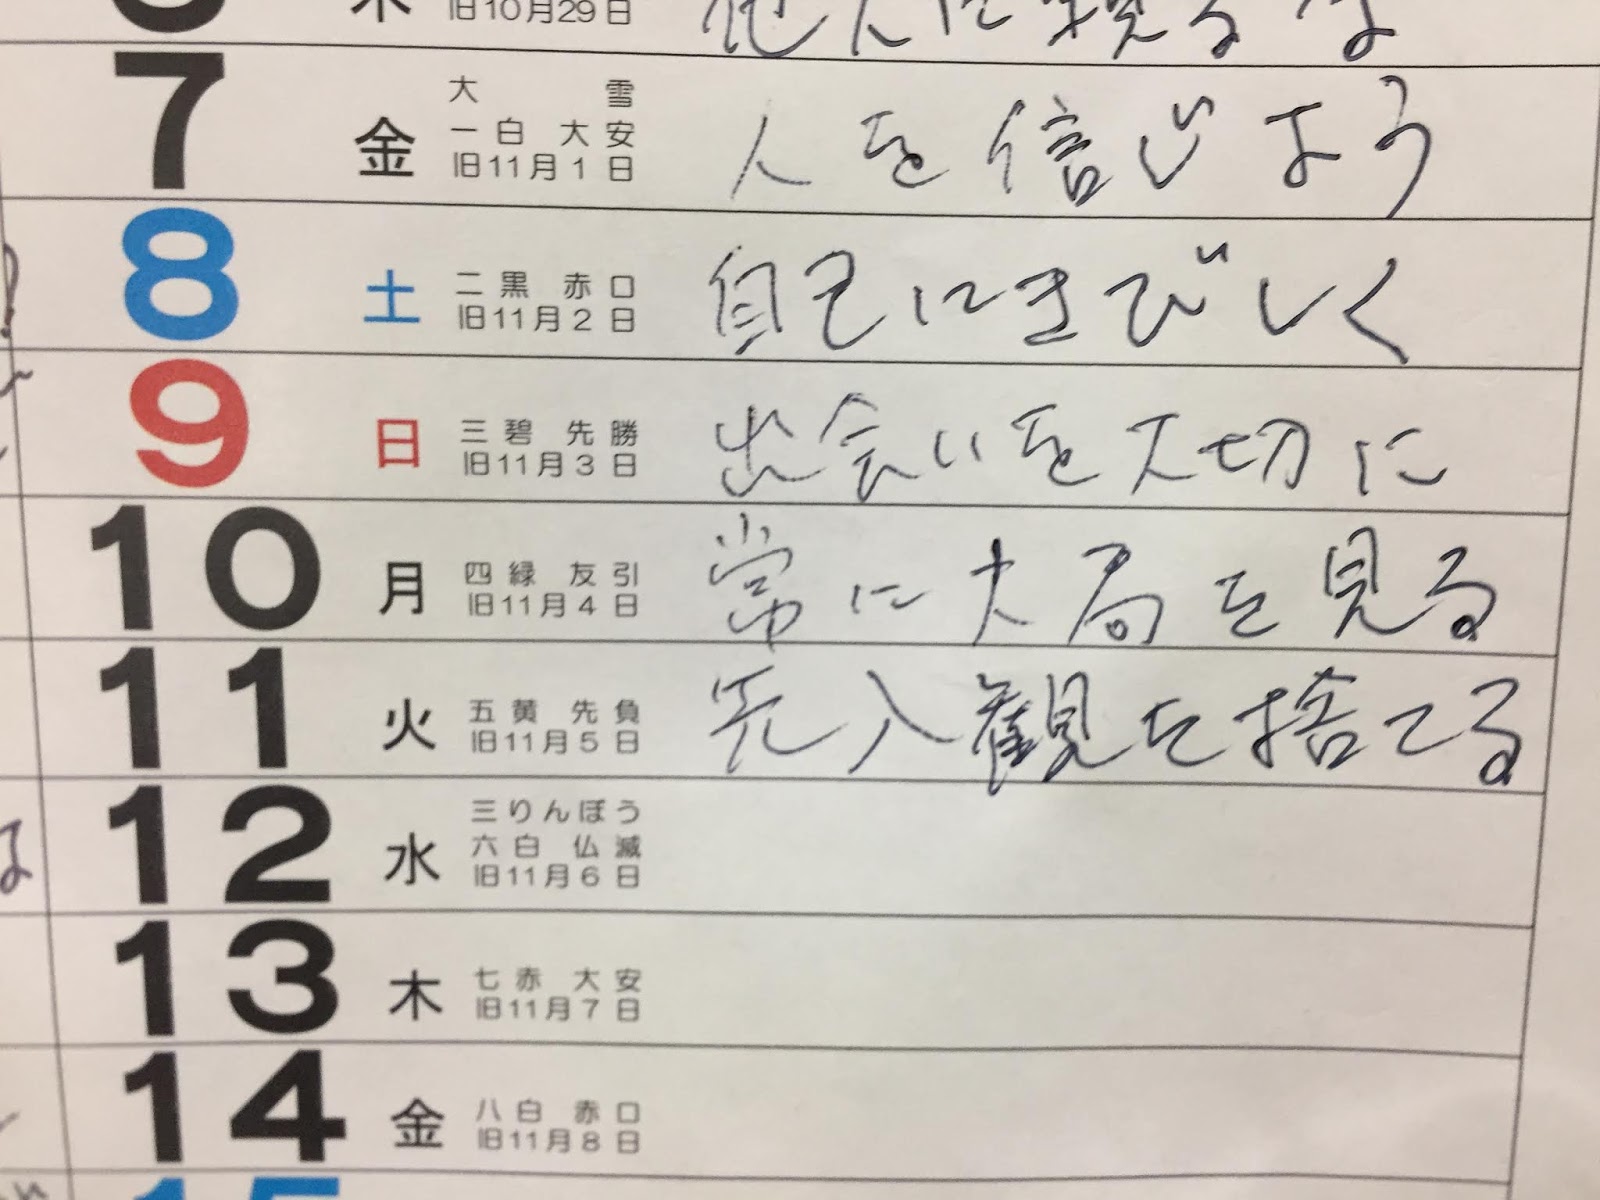 木 旧10月29日
7 金 大雪 一白 大安 旧11月1日 人を信じよう
8 土 二黒 赤口 旧11月2日 自己にきびしく
9 日 三碧 先勝 旧11月3日 出会いを大切に
10 月 四緑 友引 旧11月4日 常に大局を見る
11 火 五黄 先負 旧11月5日 先入観を捨てる
12 水 三りんぼう 六白 仏滅 旧11月6日
13 木 七赤 大安 旧11月7日
14 金 八白 赤口 旧11月8日
15